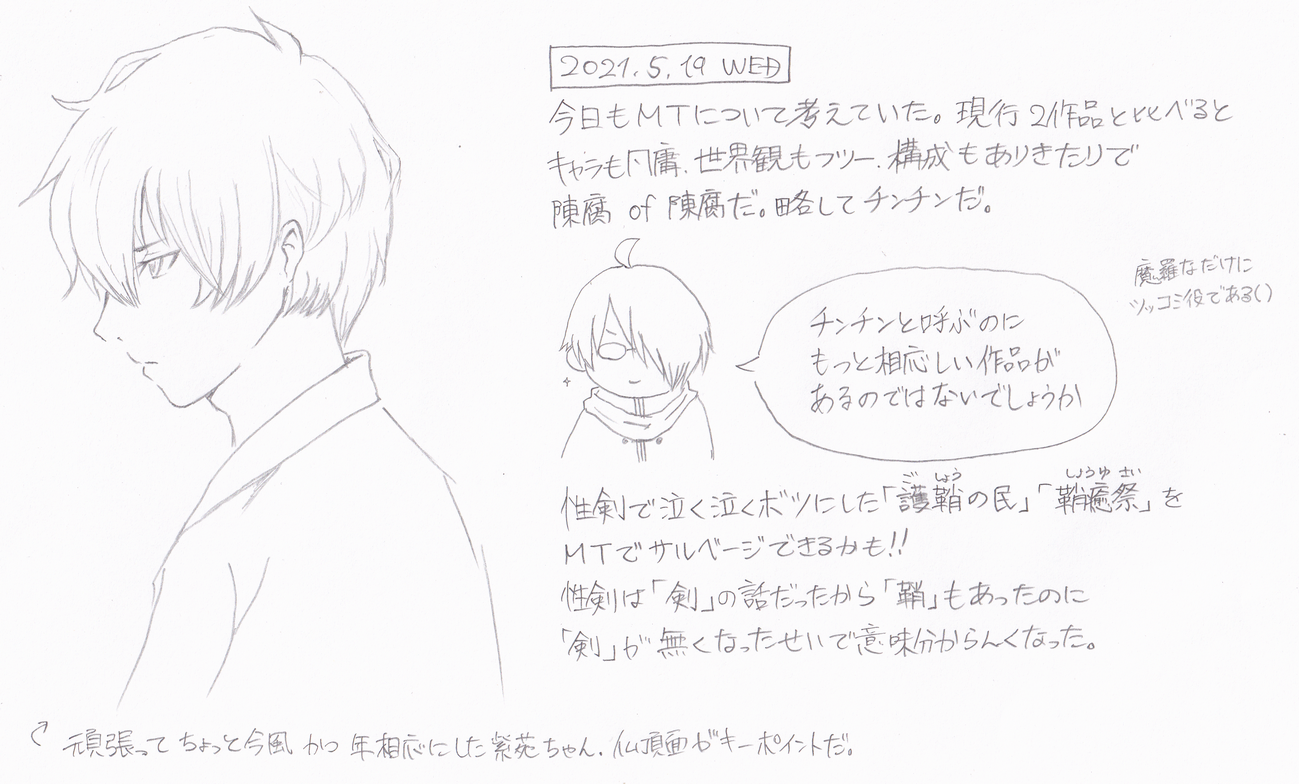 2021.5.19 WED
今日もMTについて考えていた。現行2作品と比べると
キャラも凡庸、世界観もフツー、構成もありきたりで
陳腐 of 陳腐だ。略してチンチンだ。
魔羅なだけに
ツッコミ役である()
チンチンと呼ぶのに
もっと相応しい作品が
あるのではないでしょうか
ごしょう しょうゆさい
性剣で泣く泣くボツにした「護鞘の民」「鞘癒祭」を
MTでサルベージできるかも!!
性剣は「剣」の話だったから「鞘」もあったのに
「剣」が無くなったせいで意味分からんくなった。
頑張ってちょっと今風かつ年相応にした紫苑ちゃん。仏頂面がキーポイントだ。